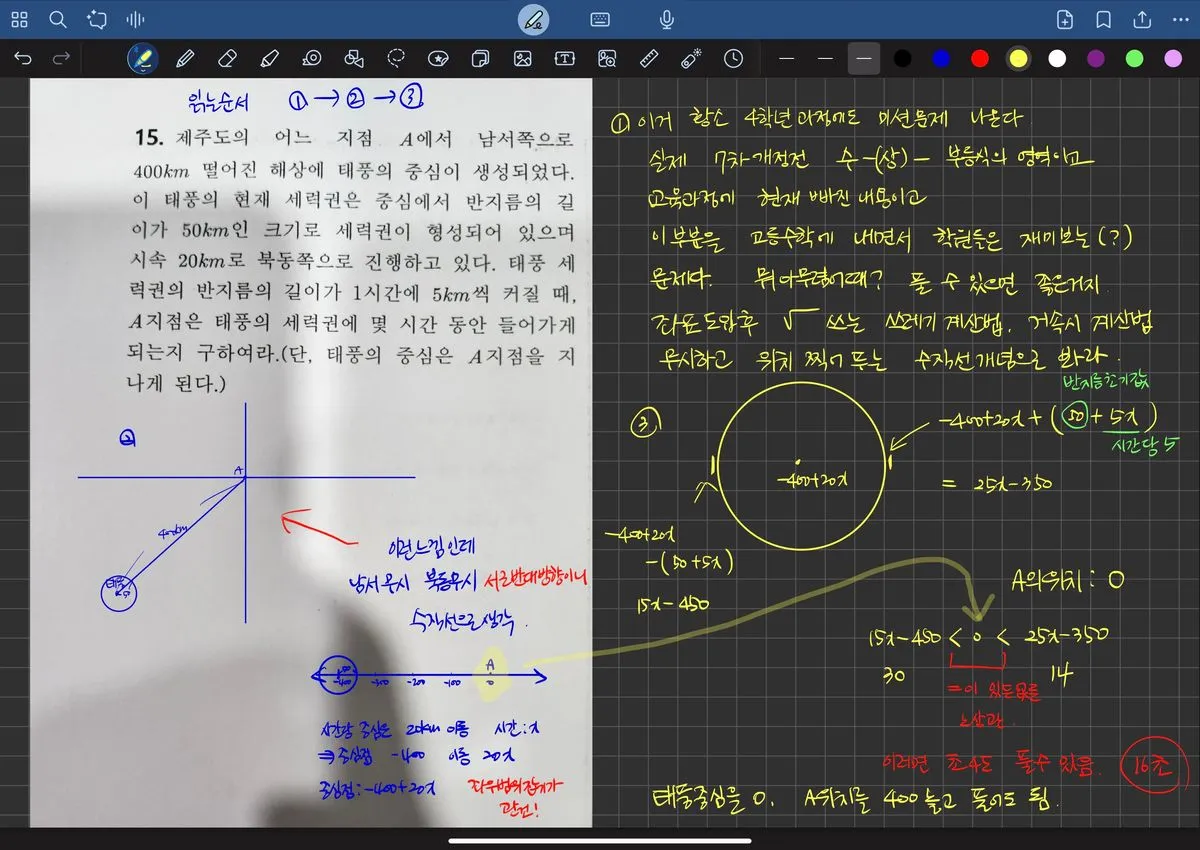 읽는순서 ① → ② → ③
15. 제주도의 어느 지점 A에서 남서쪽으로
400km 떨어진 해상에 태풍의 중심이 생성되었다.
이 태풍의 현재 세력권은 중심에서 반지름의 길
이가 50km인 크기로 세력권이 형성되어 있으며
시속 20km로 북동쪽으로 진행하고 있다. 태풍 세
력권의 반지름의 길이가 1시간에 5km씩 커질 때,
A지점은 태풍의 세력권에 몇 시간 동안 들어가게
되는지 구하여라.(단, 태풍의 중심은 A지점을 지
나게 된다.)
②
A
400km
태풍
50
이런느낌인데
남서무시 북동무시 서로반대방향이니
수직선으로생각.
A
-400 -300 -200 -100 0
시간당 중심은 20km 이동 시간:x
⇒중심점 -400 이동 20x
중심점:-400+20x 좌우범위잡기가
관건!
① 이거 황소 4학년과정에도 미션문제 나온다
실제 7차개정전 수-(상)- 부등식의 영역이고
교육과정에 현재 빠진내용이고
이부분을 고등수학에 내면서 학원들은 재미보는(?)
문제다. 뭐아무렴어때? 풀 수 있으면 좋은거지
좌표도입후 √ 쓰는 쓰레기 계산법, 거속시 계산법
무시하고 위치 찍어 두는 수직선개념으로 봐라.
③
반지름초기값
-400+20x+(50+5x)
시간당 5
= 25x-350
-400+20x
-400+20x
-(50+5x)
15x-450
A의위치: 0
15x-450 < 0 < 25x-350
30 14
=이 있든없든
노상관.
이러면 초4도 풀수있음. 16초
태풍중심을 0. A위치를 400 놓고 풀어도 됨.